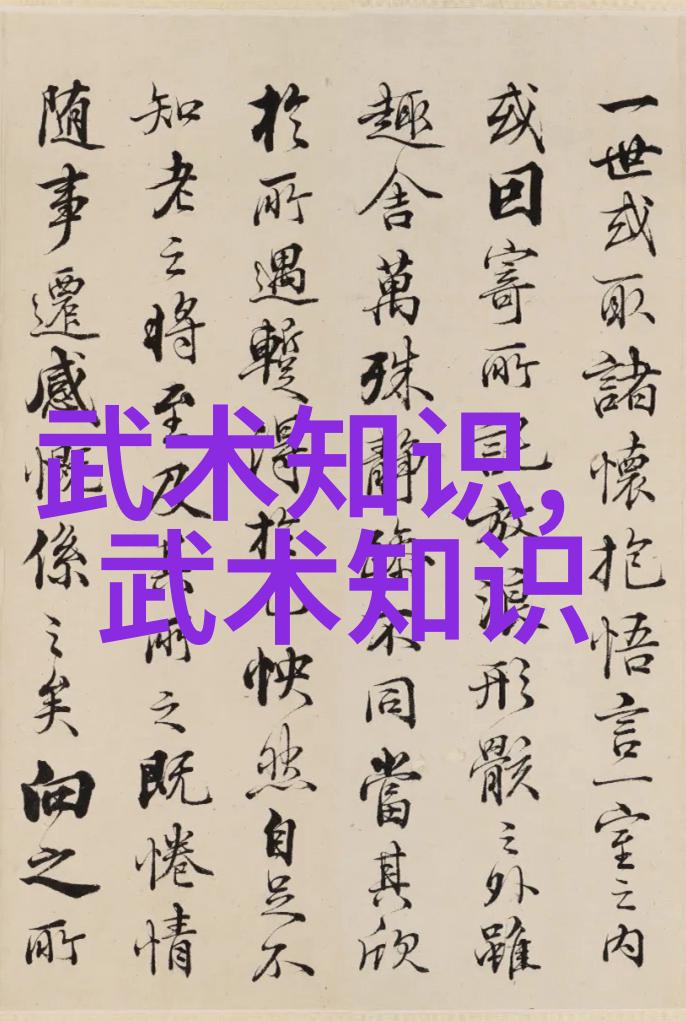 一世或取諸懷抱悟言一室之内
或囙寄所託放浪形骸之外雖
趣舍萬殊靜躁不同當其欣
於所遇蹔得於己怏然自足不
知老之將至及其所之既惓情
随事遷感慨係之矣向之所
武术知识,
武术知识